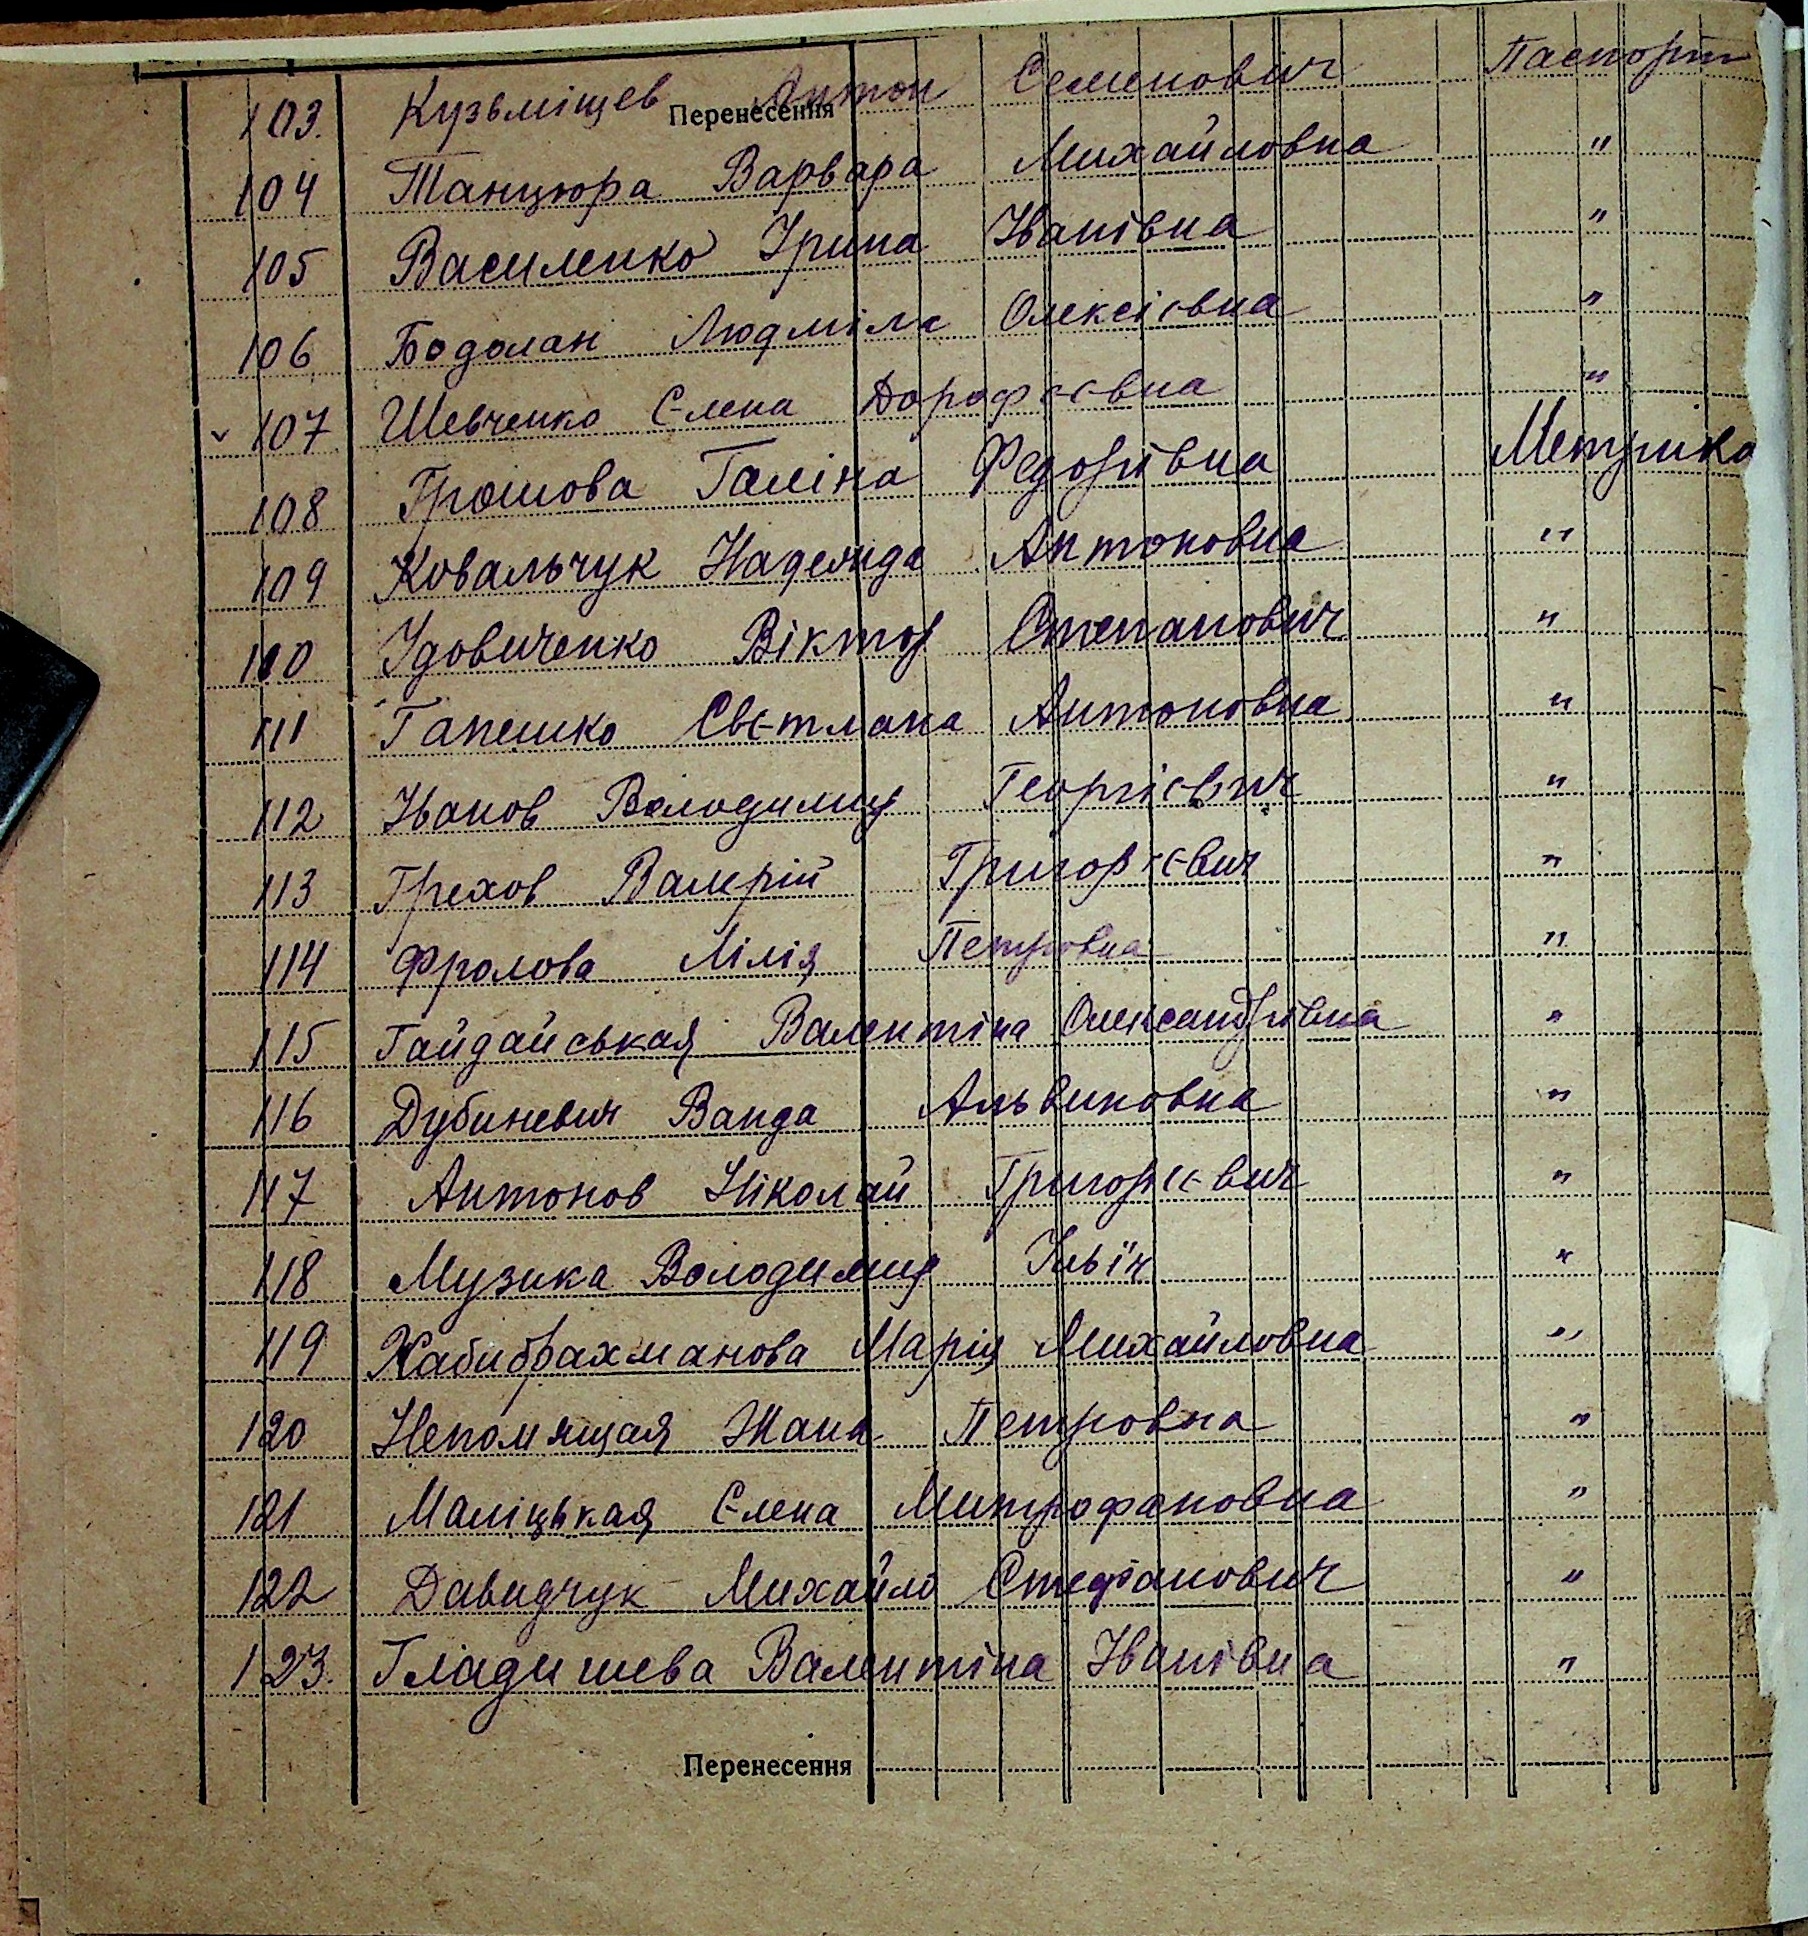 103. Кузьміщев Антон Семенович Паспорт
Перенесення
104 Танцюра Варвара Михайловна "
105 Василенко Ірина Іванівна "
106 Бодолан Людміла Олексієвна "
107 Шевченко Єлена Дорофєєвна "
108 Грошова Галіна Федорівна Метрика
109 Ковальчук Надежда Антоновна "
110 Удовиченко Віктор Степанович "
111 Гапешко Свєтлана Антоновна "
112 Іванов Володимир Георгієвич "
113 Грехов Валерій Григорєєвич "
114 Фролова Лілія Петровна "
115 Гайдайськая Валентіна Олександрівна "
116 Дубиневич Ванда Альвиновна "
117 Антонов Ніколай Григорієвич "
118 Музика Володимир Ільїч "
119 Хабибрахманова Марія Михайловна "
120 Непомящая Жана Петровна "
121 Маліцькая Єлена Митрофановна "
122 Давидчук Михайло Стефанович "
123. Гладишева Валентіна Іванівна "
Перенесення